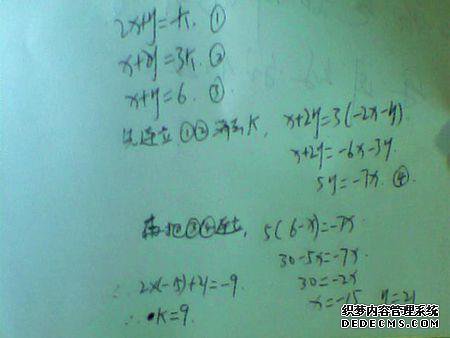 2x+y=-k. ①
x+2y=3k ②
x+y=6. ③
先连立①②消去K,
x+2y=3(-2x-y)
x+2y=-6x-3y.
5y=-7x. ④
再把③④连立,
5(6-x)=-7x.
30-5x=-7x
30=-2x
x=-15 y=21
∴ 2×(-15)+21=-9.
∴ K=9.
织梦内容管理系统
DEDECMS.COM